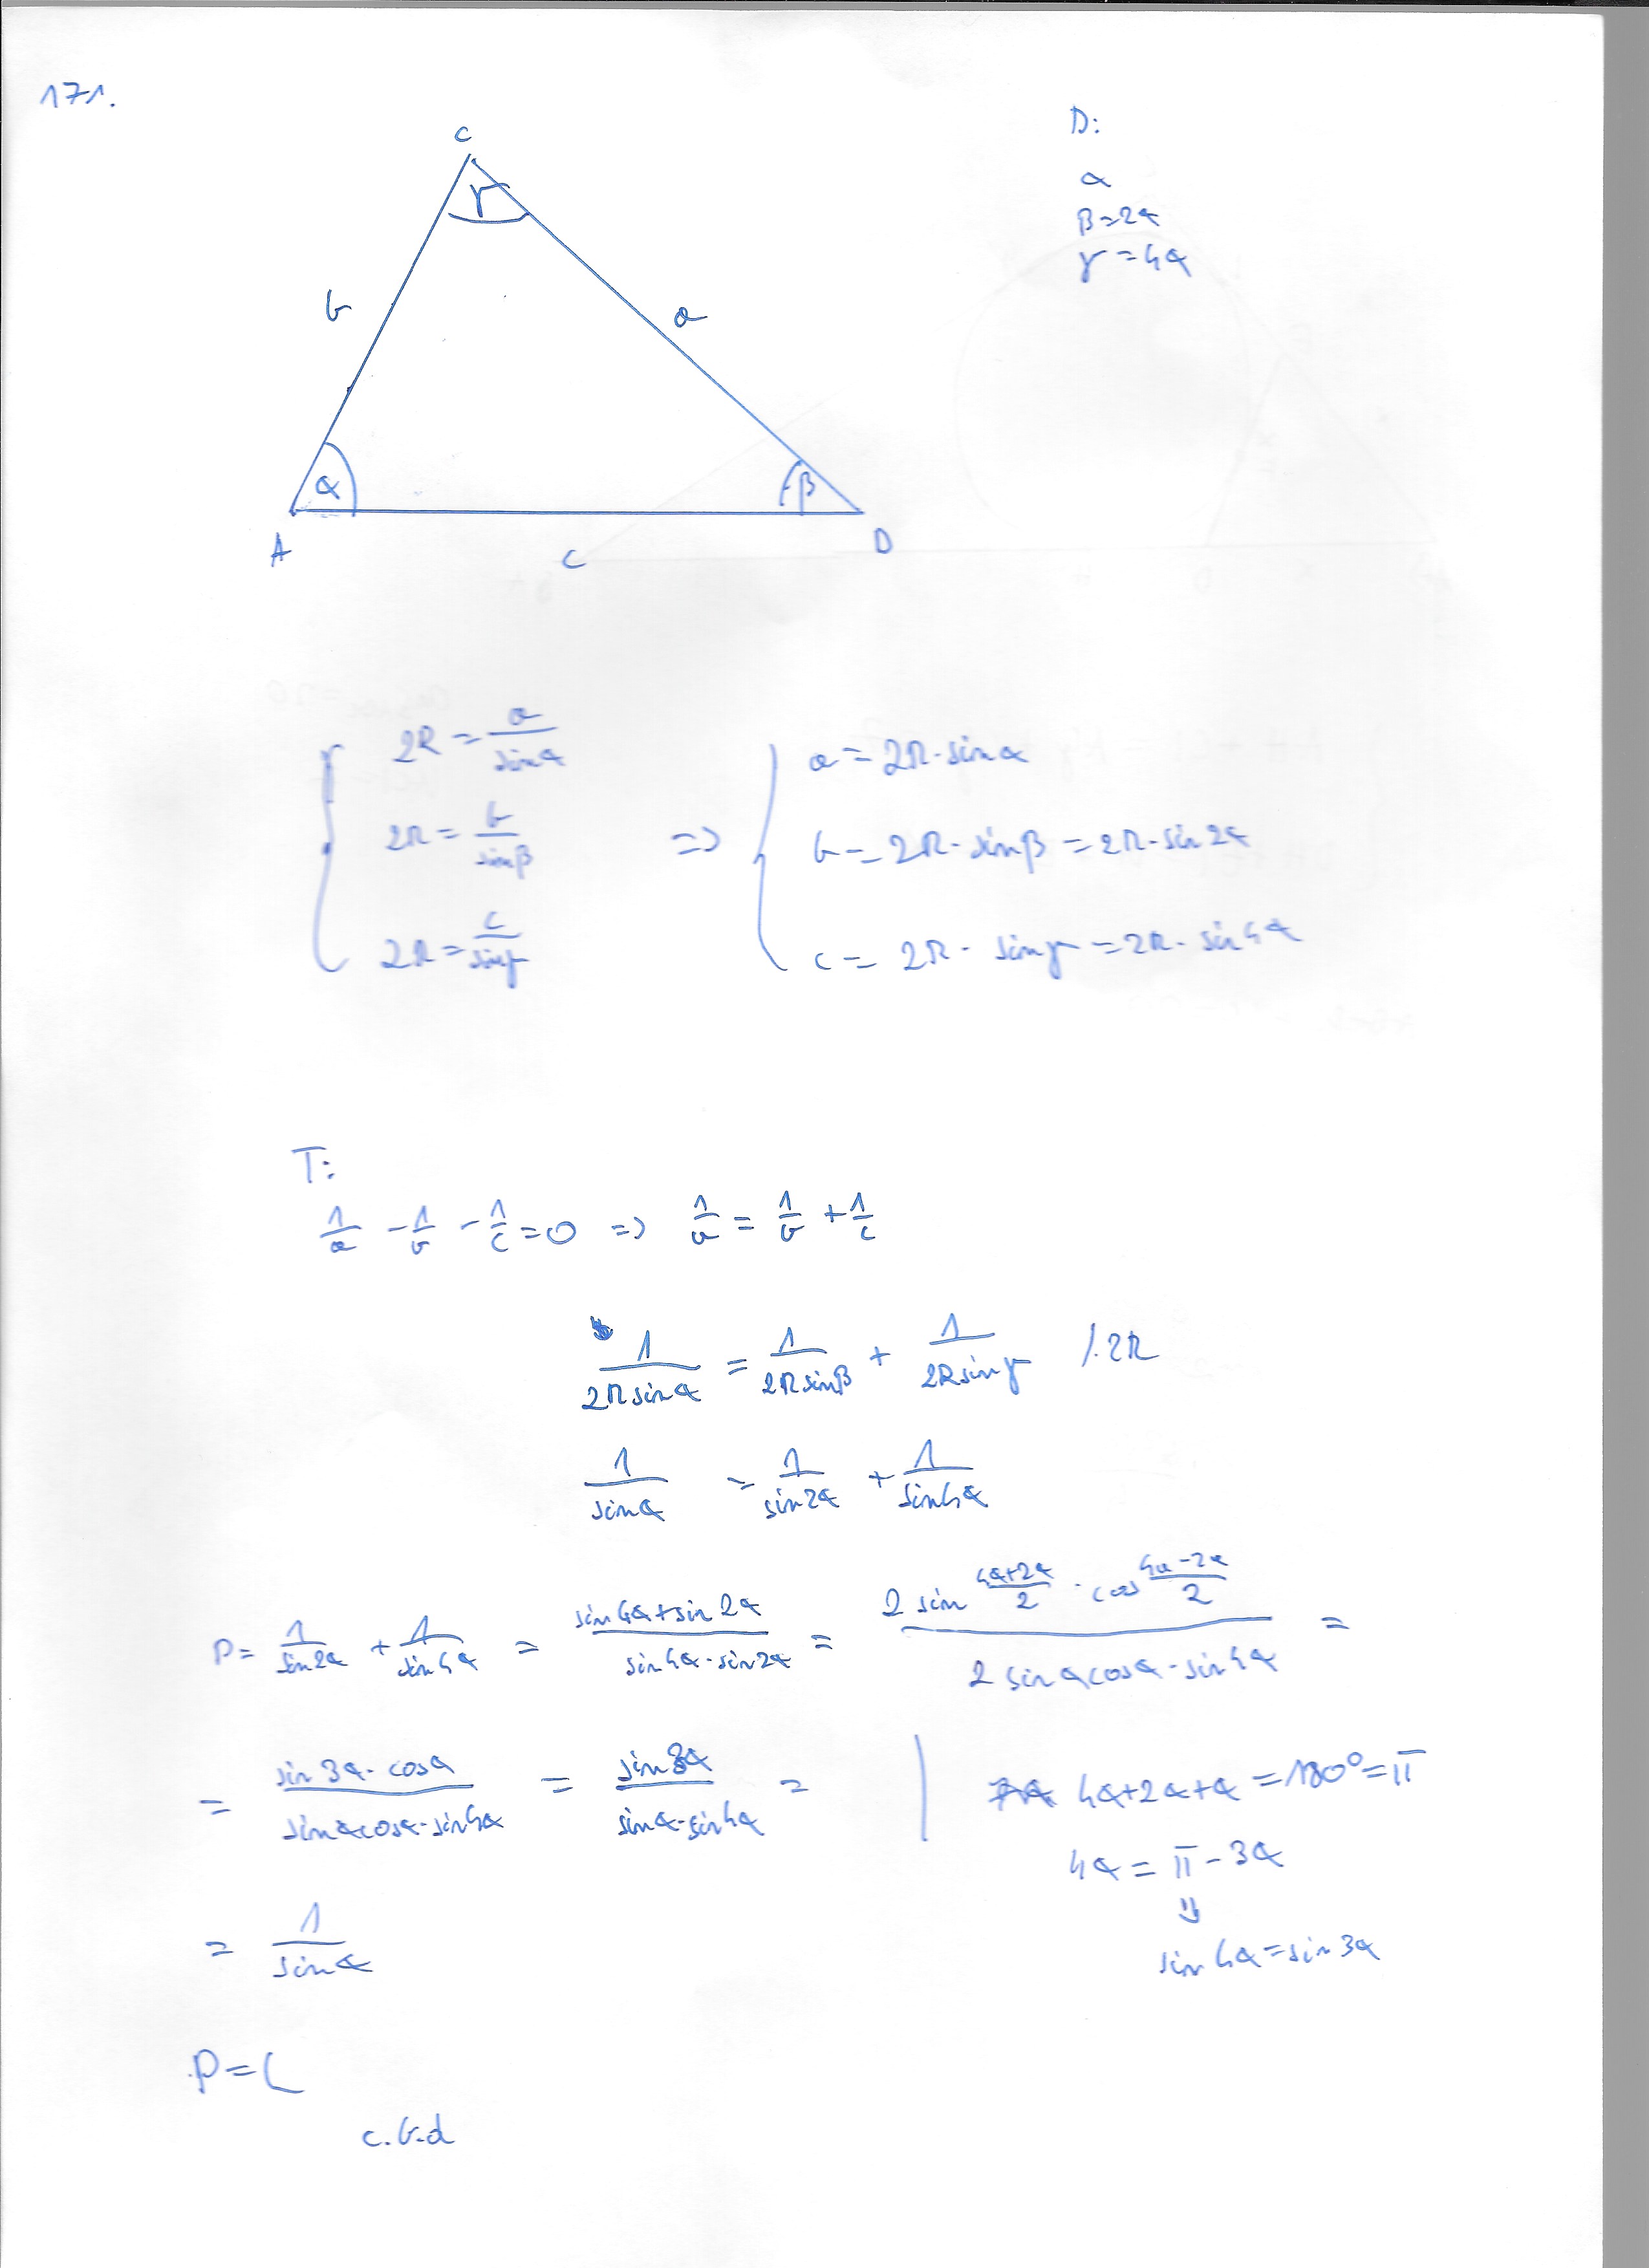 171.
C
γ
b
a
α
β
A
c
D
D:
α
β=2α
γ=4α
2R = a/sinα
2R = b/sinβ
2R = c/sinγ
=>
a = 2R·sinα
b = 2R·sinβ = 2R·sin2α
c = 2R·sinγ = 2R·sin4α
T:
1/a - 1/b - 1/c = 0 => 1/a = 1/b + 1/c
1/(2R sinα) = 1/(2R sinβ) + 1/(2R sinγ) /·2R
1/sinα = 1/sin2α + 1/sin4α
P = 1/sin2α + 1/sin4α = (sin4α+sin2α)/(sin4α·sin2α) = (2 sin (4α+2α)/2 · cos (4α-2α)/2)/(2 sinα cosα·sin4α) =
= (sin3α·cosα)/(sinα cosα·sin4α) = sin3α/(sinα·sin4α) =
= 1/sinα
4α+2α+α = 180° = π
4α = π - 3α
⇓
sin4α = sin3α
P = L
c.b.d